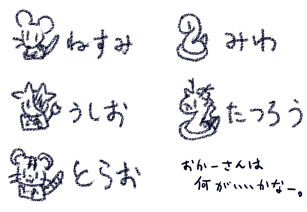 ねずみ
うしお
とらお
みわ
たつろう
おかーさんは
何がいいかなー。